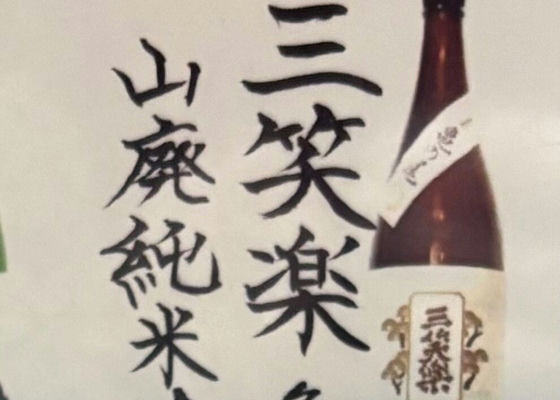 三笑楽
山廃純米
三笑楽